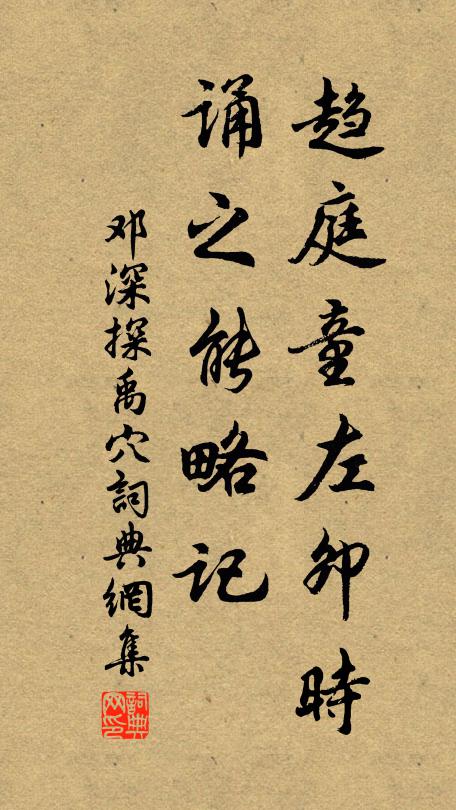 趋庭童左卯時
诵之能略记
邓深探禹穴詞典網集
詞典网印